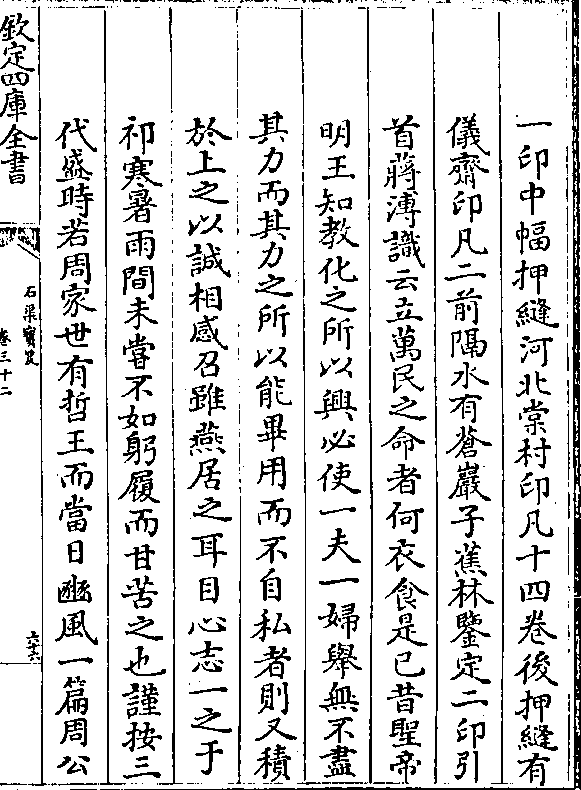 一印中幅押縫河北棠村印凡十四卷後押縫有
儀齋印凡二前隔水有蒼巖子蕉林鑒定二印引
首蔣溥識云立萬民之命者何衣食是已昔聖帝
明王知教化之所以興必使一夫一婦舉無不盡
其力而其力之所以能畢用而不自私者則又積
於上之以誠相感召雖燕居之耳目心志一之于
祁寒暑雨間未嘗不如躬履而甘苦之也謹按三
代盛時若周家世有哲王而當日豳風一篇周公
欽定四庫全書
石渠寶笈
卷三十二
六十六